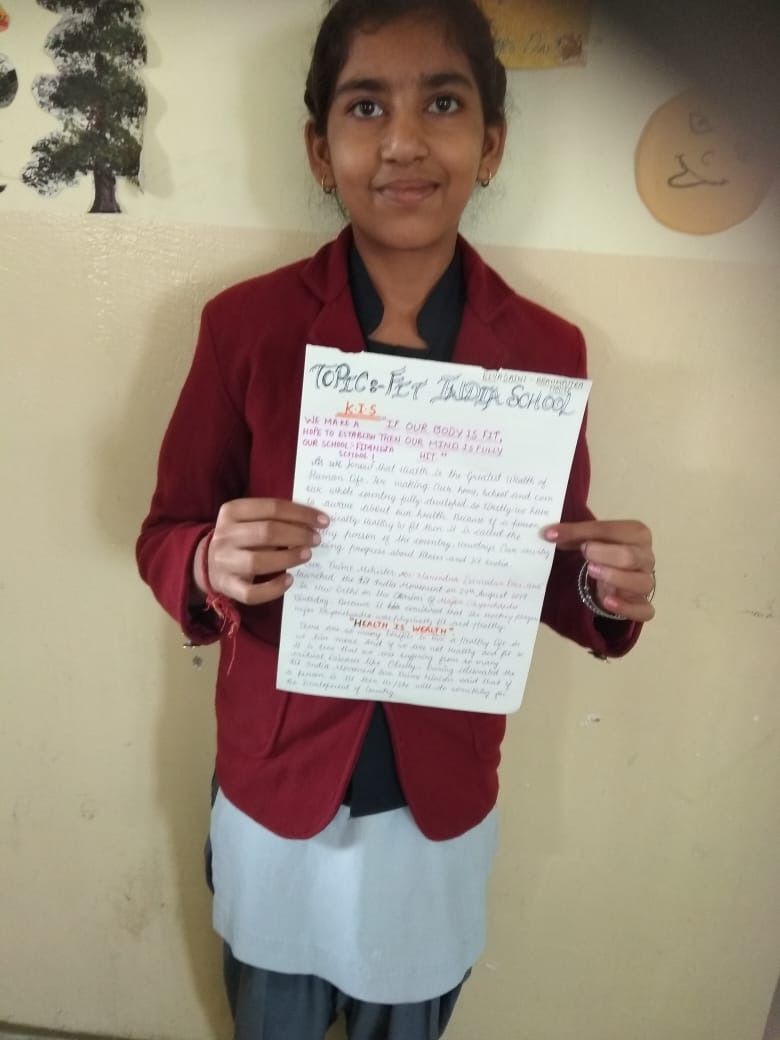 TOPIC:- FIT INDIA SCHOOL
K.I.S
WE MAKE A "IF OUR BODY IS FIT,
HOPE TO ESTABLISH THEN OUR MIND IS FULLY
OUR SCHOOL :- FITINDIA HIT"
SCHOOL!
As we know that Health is the Greatest Wealth of
Human life. For making Our home, School and even
our whole country fully developed so Firstly we have
to aware about our health. Because if a person
physically healthy & fit then it is called the
healthy person of the country. Nowadays Our country
progress about fitness and Fit India.
Our Prime Minister Mr. Narendra Damodar Das
launched the Fit India Movement on 29th August 2019
in New Delhi on the Occasion of Major Dhyanchand's
Birthday. Because it considered that the hockey player
major Dhyanchandra was physically fit and Healthy.
"HEALTH IS WEALTH"
There are so many to live a Healthy life. As
we live more and if we are not Healthy and fit so
it is true that we are suffering from so many
critical Diseases like Obesity. During the
Fit India Movement Our Prime Minister said that if
a person is fit then He/she will do something for
the Development of Country.